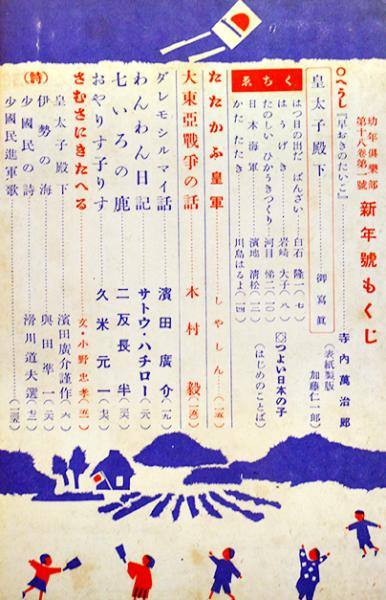 幼年俱樂部
第十八卷第一號
新年號もくじ
○へうし『早おきのたいこ』
寺內萬治郎
(表紙製版 加藤仁一郎)
皇太子殿下
御寫眞
ゑちく
はつ日の出だ ばんざい
白石隆一
はうげき
岩崎大子
たのしい ひかうきつくり
河目悌二
日本海軍
濱地淸松
かたたたき
川島はるよ
つよい日本の子
(はじめのことば)
たたかふ皇軍
しやしん
大東亞戰爭の話
木村毅
ダレモシルマイ話
濱田廣介
わんわん日記
サトウ・ハチロー
七いろの鹿
二反長半
おやりす子りす
久米元一
さむさにきたへる
文・小野忠孝
(詩)
皇太子殿下
濱田廣介謹作
伊勢の海
與田凖一
少國民の詩
滑川道夫選
少國民進軍歌